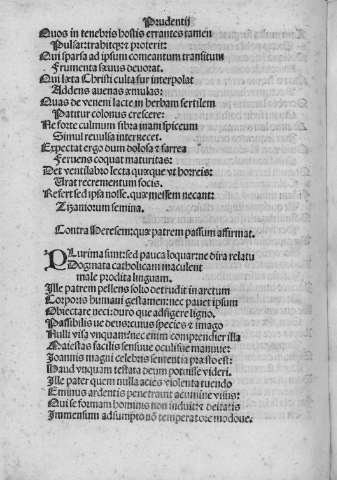 Prudentij
Quos in tenebris hostis errantes tamen
Pulsat: trahitqꝫ: ⁊ proterit:
Qui sparsa ad ipsum comeantum transitum
Frumenta sæuus deuorat.
Qui læta Christi culta fur interpolat
Addens auenas æmulas:
Quas de venem lacte in herbam fertilem
Patitur colonus crescere:
Ne forte culmum fibra inani spiceum
Simul reuulsa internecet.
Expectat ergo dum dolosa ⁊ farrea
Feruens coquat maturitas:
Det ventilabro lecta quæque vt horreis:
Urat recrementum focis.
Refert sed ipsa nosse. quæ messem necant:
Tizaniorum semina.
Contra Heresem: quæ patrem passum affirmat.
PLurima sunt: sed pauca loquar: ne dira relatu
Dogmata catholicam maculent
male prodita linguam.
Ille patrem pellens solio detrudit in arctum
Corporis humani gestamen: nec pauet ipsum
Obiectare neci: duro que adfigere ligno.
Passibilis ne deus: cuius species ⁊ imago
Nulli visa vnquam: nec enim comprendier illa
Maiestas facilis sensuue oculisue manuue:
Joannis magni celebris sententia præsto est:
Haud vnquam testata deum potuisse videri.
Ille pater quem nulla acies violenta tuendo
Eminus ardentis penetrauit acumine visus:
Qui se formam hominis non induit: ⁊ deitatis
Immensum adsumpto nō temperat ore modoue.